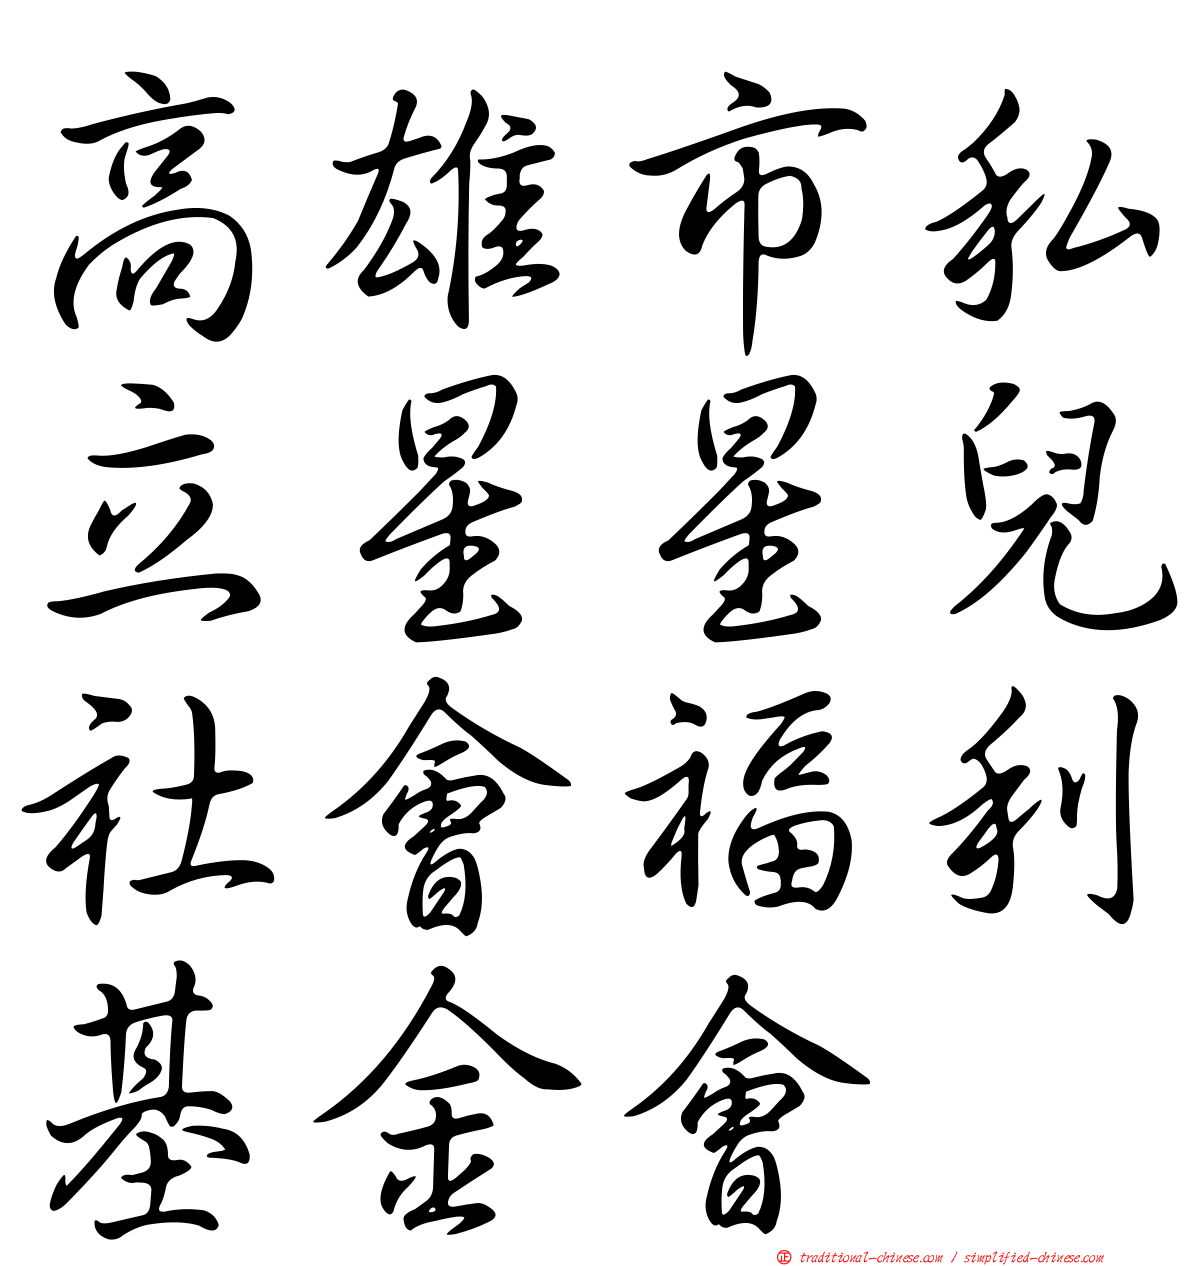 高雄市私
立星星兒
社會福利
基金會
正 traditional-chinese.com / simplified-chinese.com